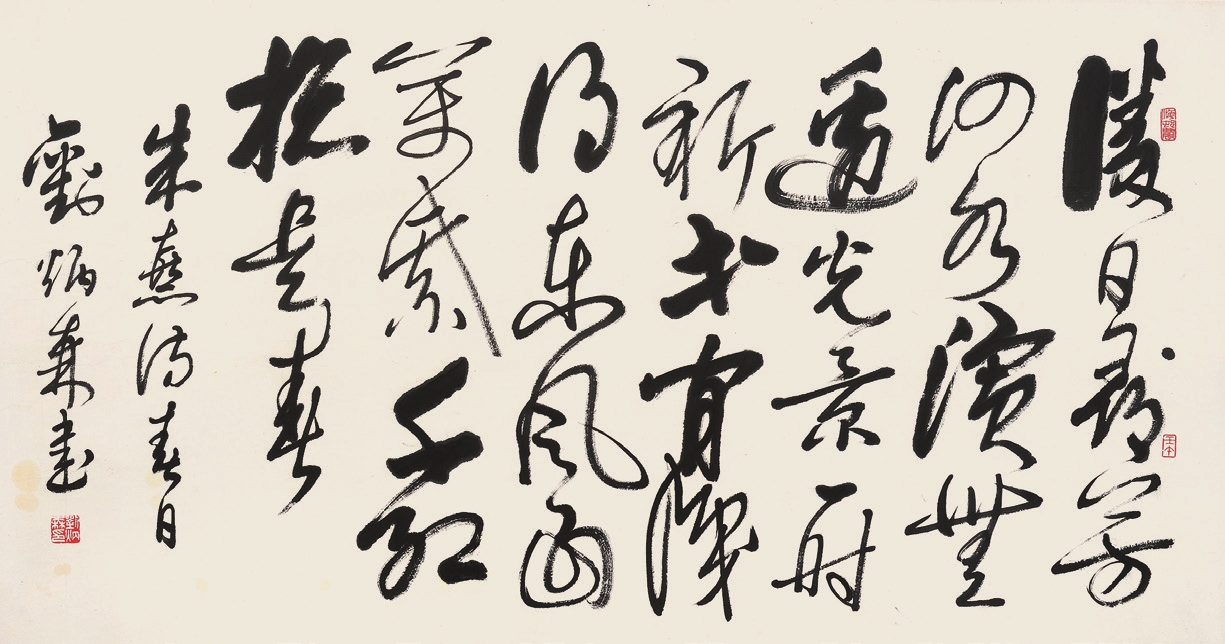 勝日尋芳
泗水濱無
邊光景一時
新等閒識
得東風面
萬紫千紅
總是春
朱熹詩春日
劉炳森書